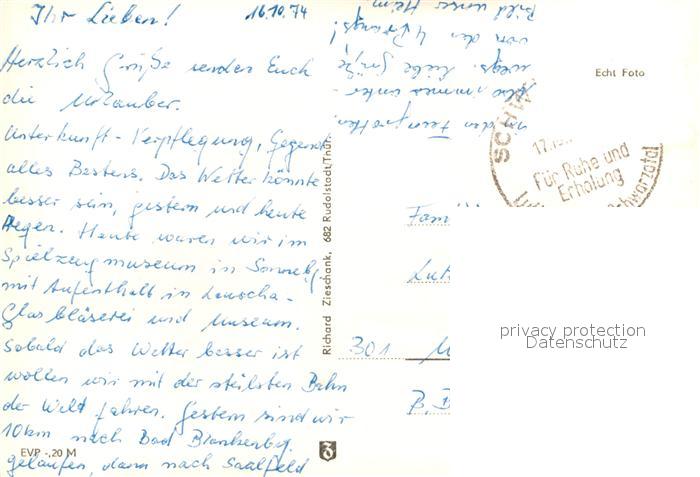 Ihr Lieben! 16.10.74
Herzlich Grüße senden Euch
die Urlauber.
Unterkunft - Verpflegung, Gegend
alles Bestens. Das Wetter könnte
besser sein, gestern und heute
Regen. Heute waren wir im
Spielzeugmuseum in Sonneberg
mit Aufenthalt in Lauscha -
Glasbläserei und Museum.
Sobald das Wetter besser ist
wollen wir mit der steilsten Bahn
der Welt fahren. Gestern sind wir
10km nach Bad Blankenbg.
gelaufen, dann nach Saalfeld
zu den Feengrotten.
Also immer unter-
wegs. Liebe Grüße
von den 4
Bild unser Heim
EVP -,20 M
Richard Zieschank, 682 Rudolstadt/Thür.
Echt Foto
SCHW
17.10.
Für Ruhe und
Erholung
Schwarzatal
Fam
Lut
301 M
B. B
privacy protection
Datenschutz